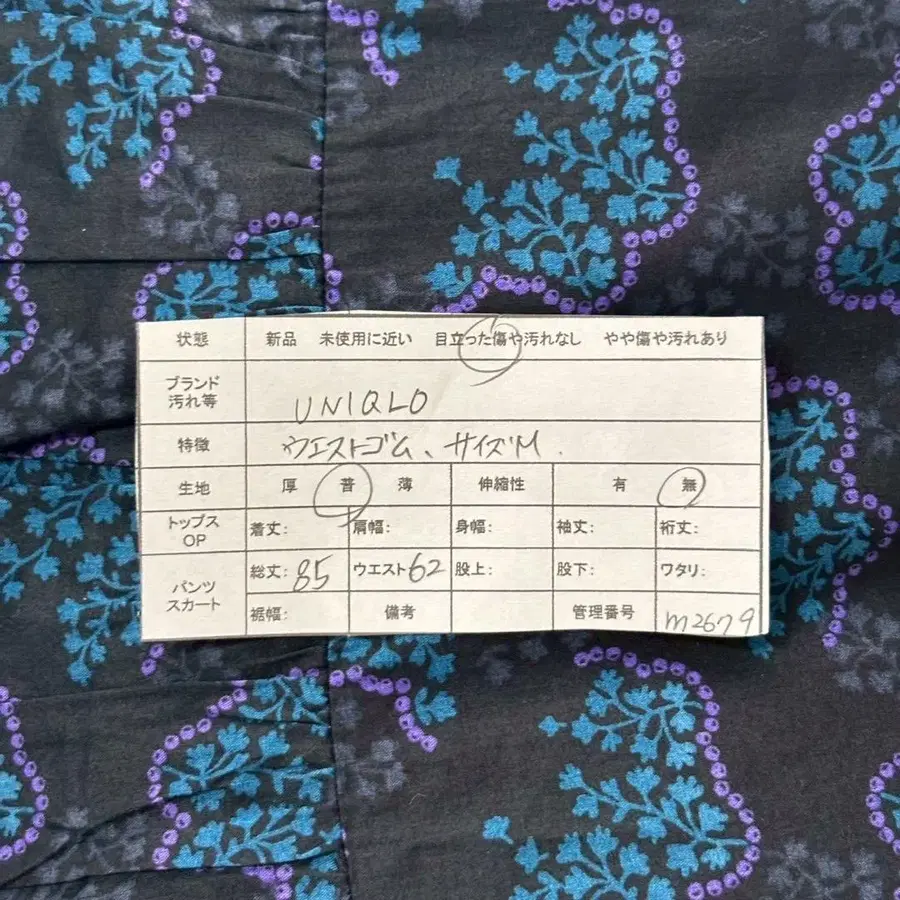 状態 新品 未使用に近い 目立った傷や汚れなし やや傷や汚れあり
ブランド
汚れ等 UNIQLO
特徴 ウエストゴム、サイズM.
生地 厚 普 薄 伸縮性 有 無
トップス
OP 着丈: 肩幅: 身幅: 袖丈: 裄丈:
パンツ
スカート 総丈: 85 ウエスト62 股上: 股下: ワタリ:
裾幅: 備考 管理番号 m2679